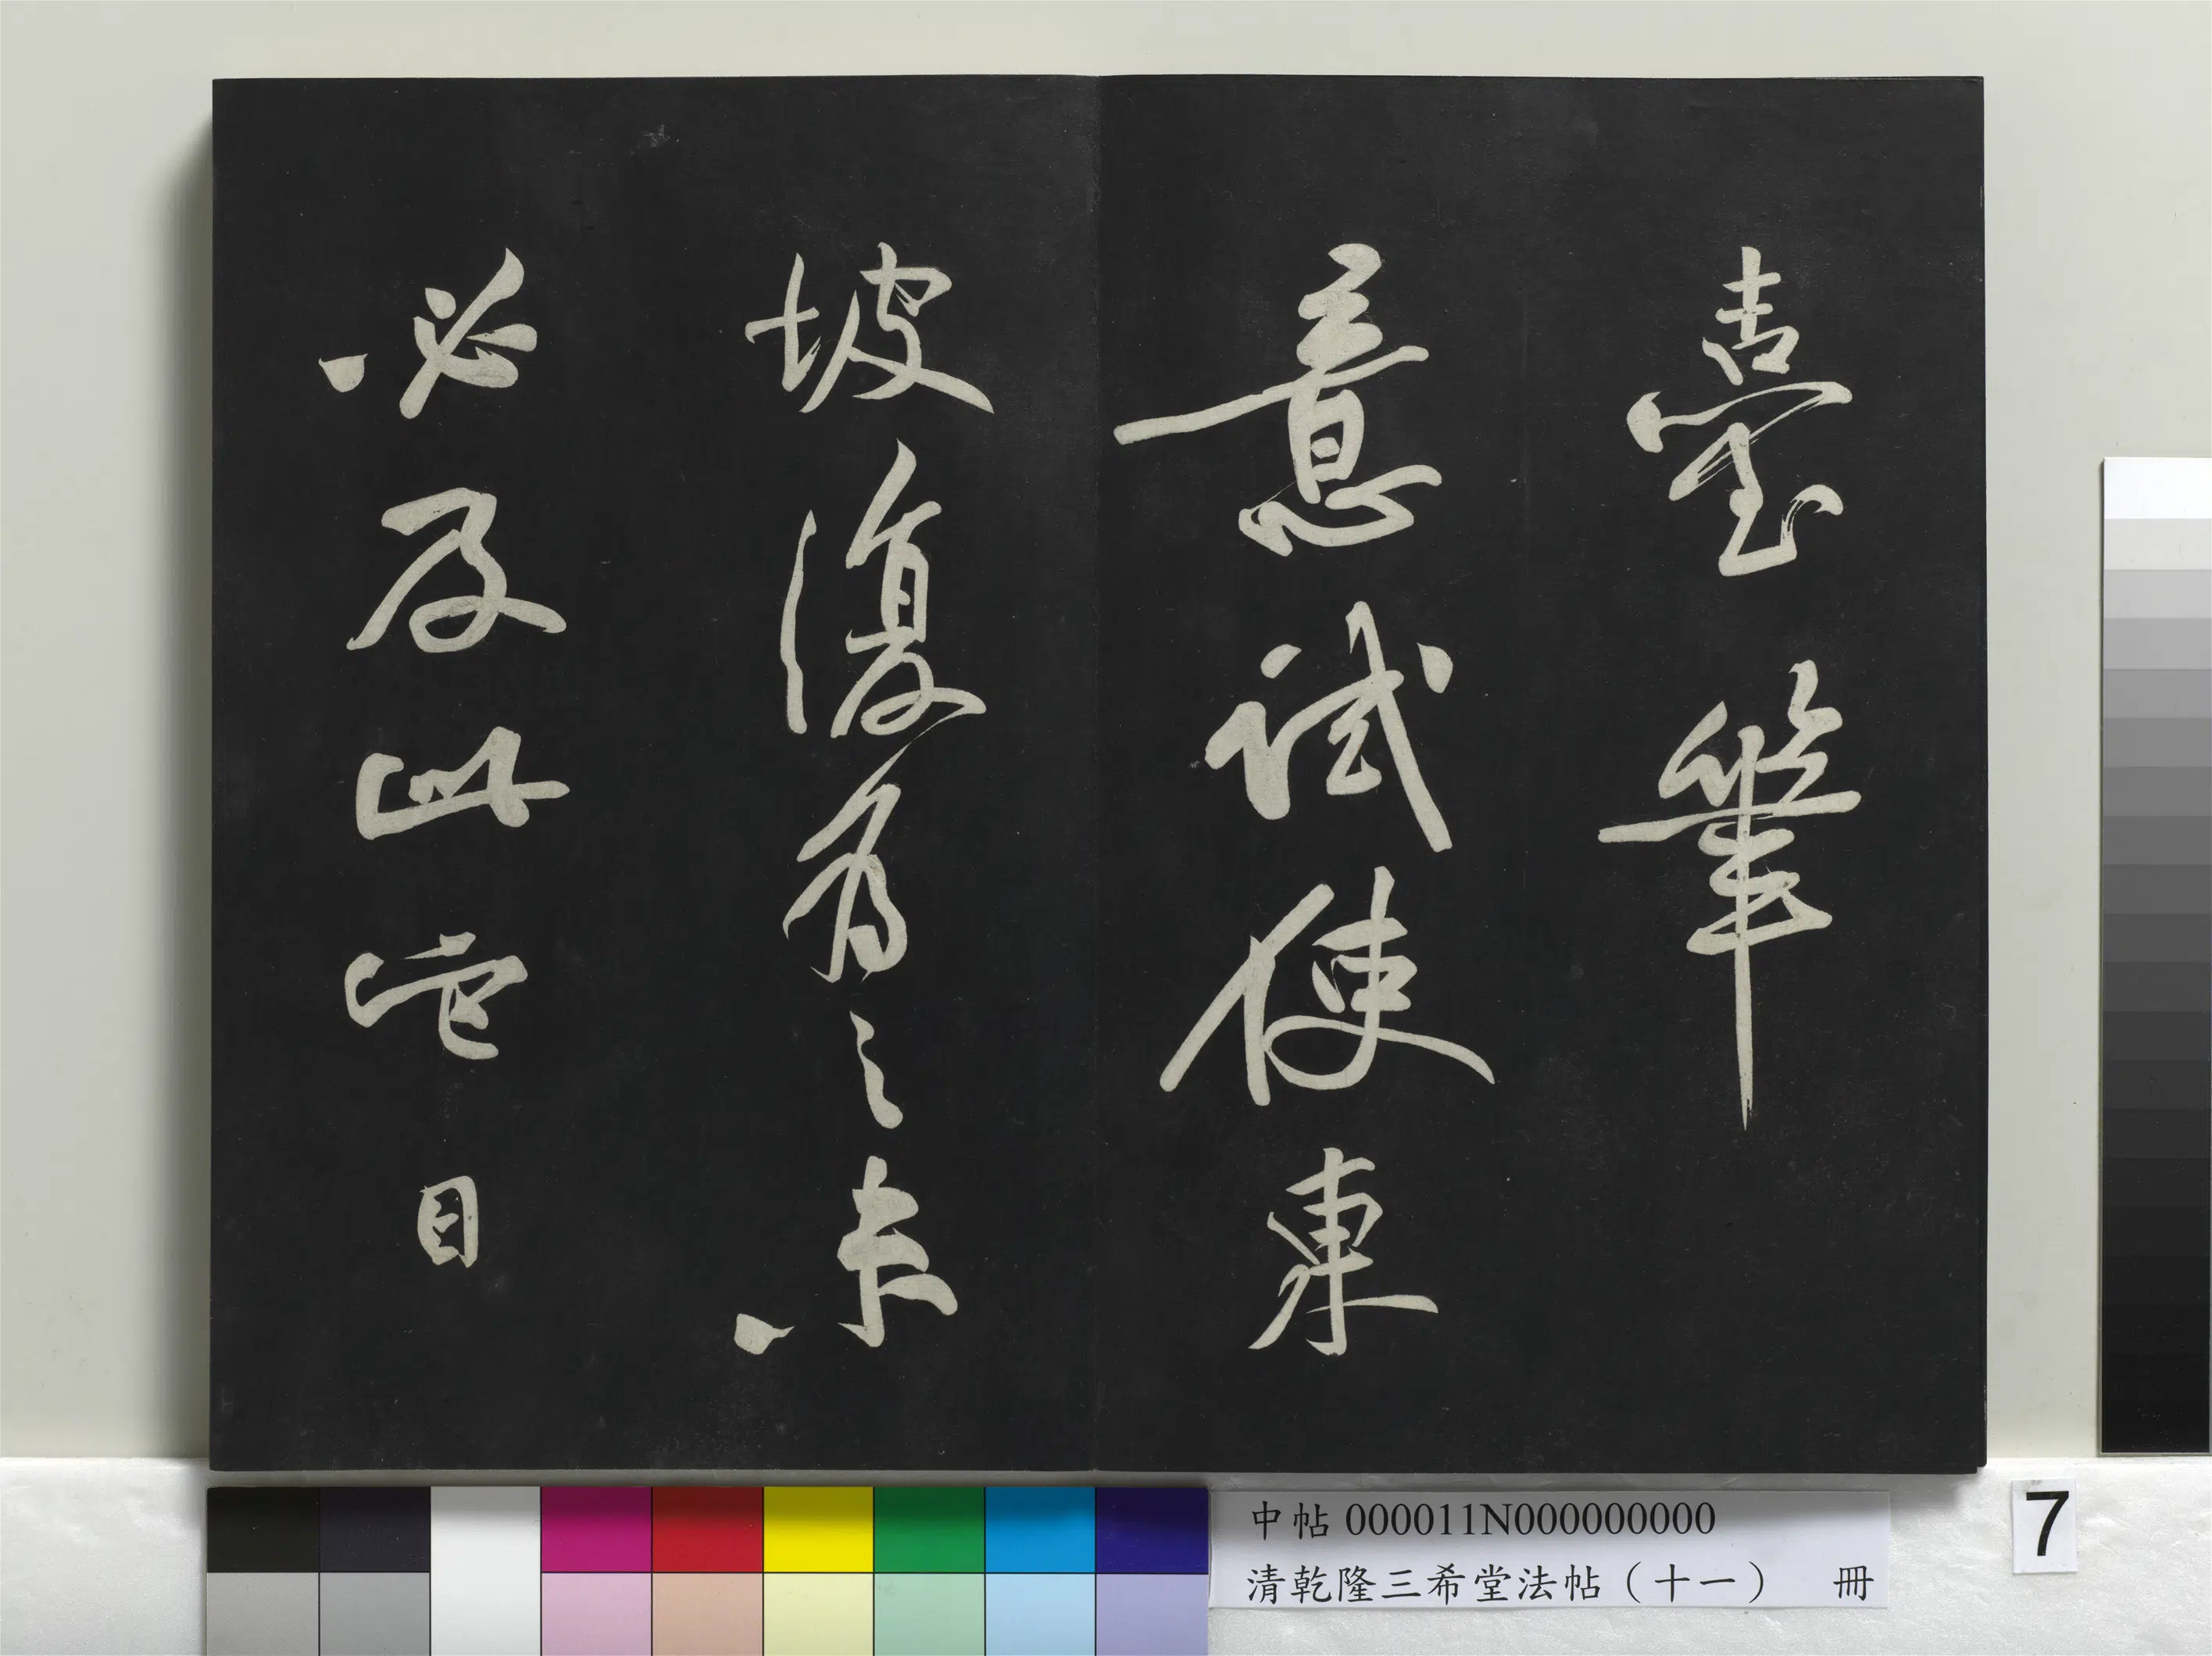 臺筆
意試使東
坡復為之未
必及此它日
中帖 000011N000000000
清乾隆三希堂法帖（十一） 冊
7